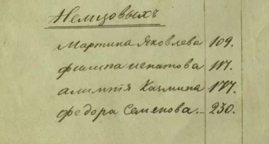 Немцовыхъ
Мартина Яковлева 109.
филипа игнатова 117.
алимпія Казмина 177.
федора Семенова.. 230.